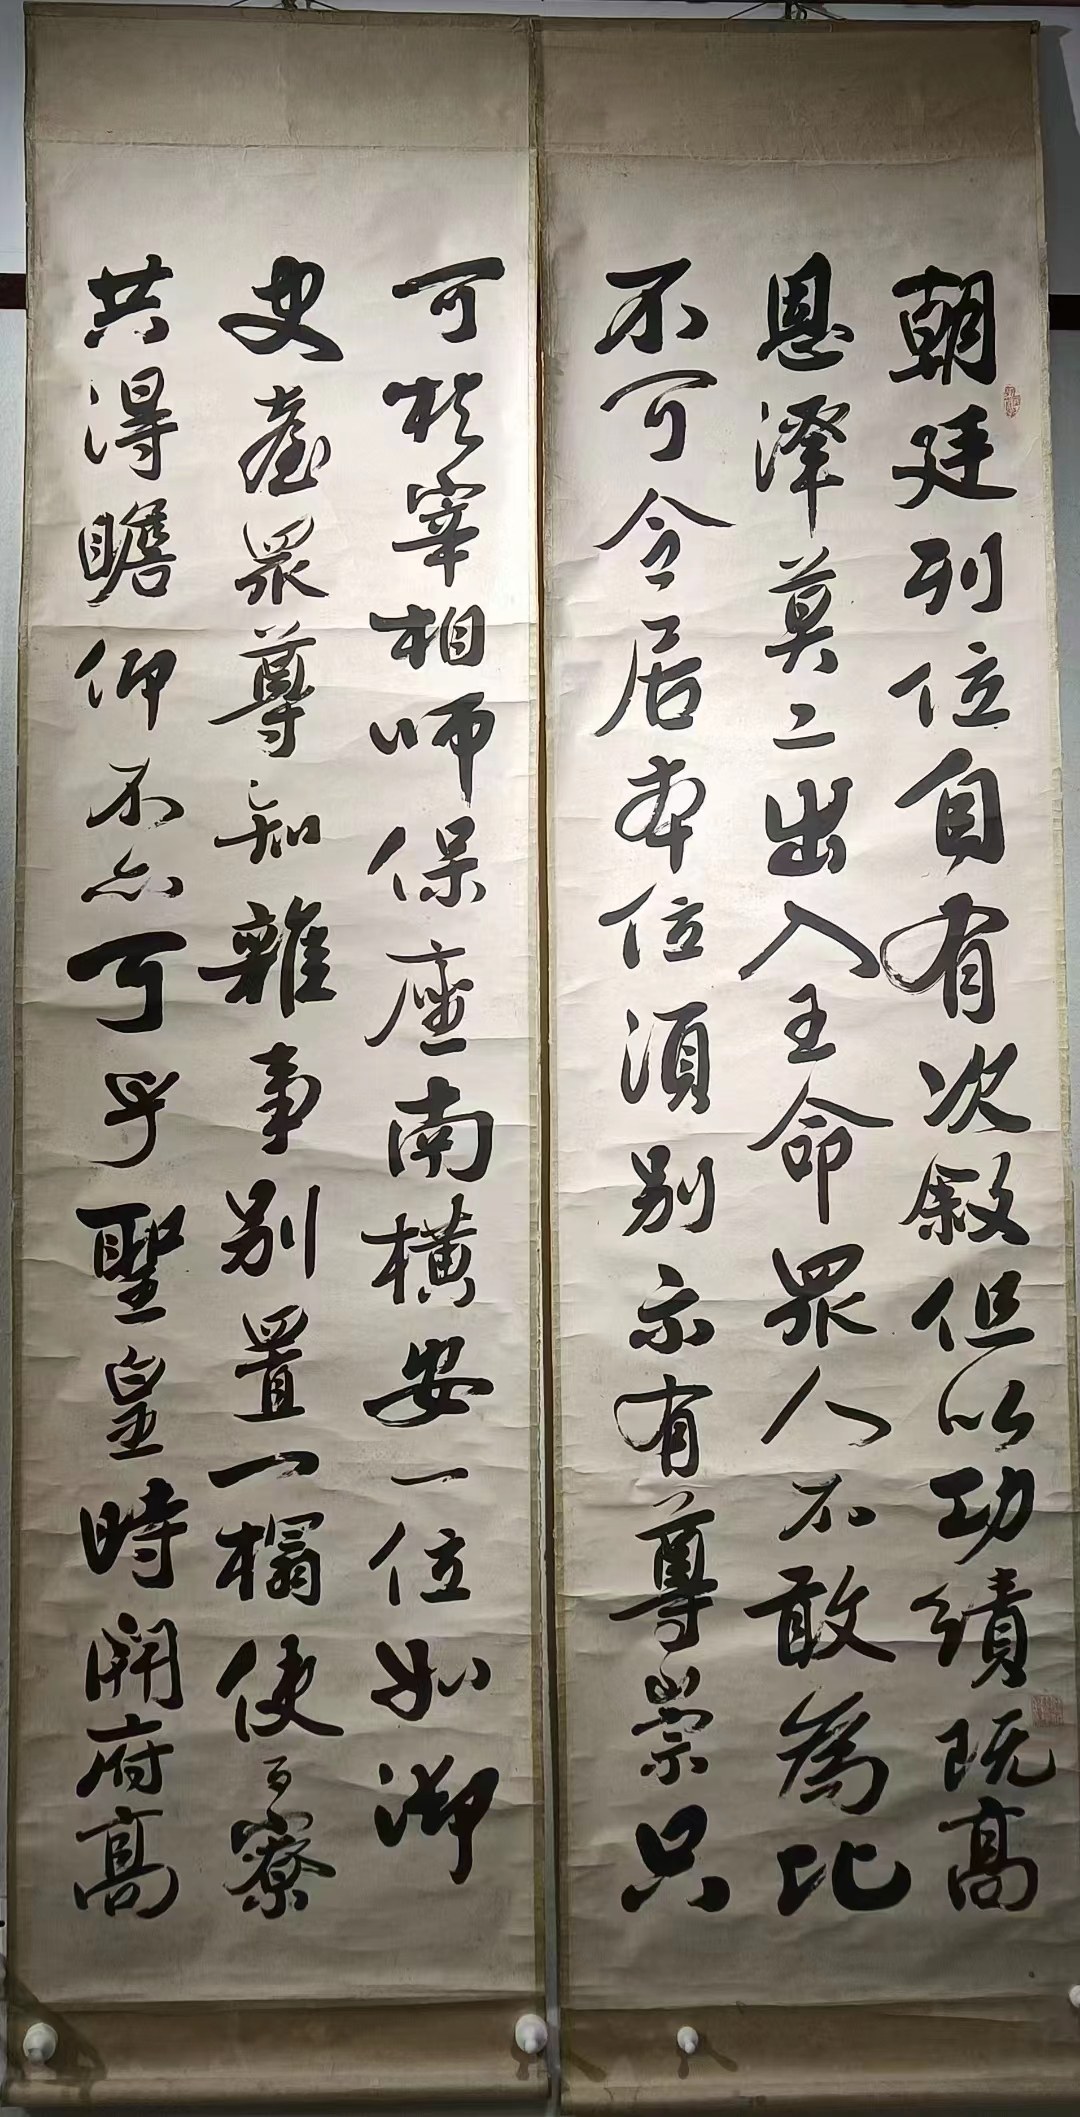 朝廷列位自有次敘但以功績既高
恩澤莫二出入王命眾人不敢為比
不可令居本位須別示有尊崇只
可於宰相師保座南橫安一位如御
史臺眾尊知雜事別置一榻使百寮
共得瞻仰不亦可乎聖皇時開府高